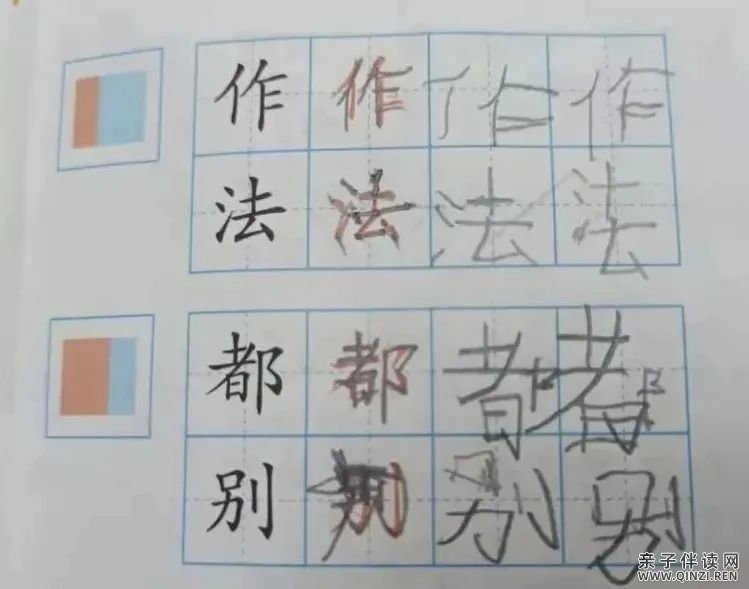 作 作 作 作
法 法 法 法
都 都 都 都
别 别 别 别
亲子伴读网
WWW.QINZI.REN